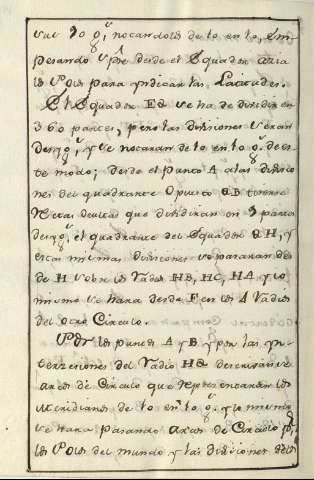 de 10 g.s notandolos de 10 en 10, em
pesando spre desde el Equador azia
los Polos para yndicar las Latitudes.
El Equador EQ se ha de dividir en
360 partes, pero las divisiones seran
de 10 g.s, y se notaran de 10 en 10 g.s de es
te modo; desde el punto A a las divicio
nes del quadrante Opuesto QB tirense
Rectas ocultas que dividiran en 9 partes
de 10 g.s el quadrante del Equador QH, y
estas mismas divisiones se pasaran des
de H sobre los Radios HB, HC, HA y lo
mismo se hara desde F en los 4 Radios
del otro Circulo.
Por los puntos A y B y por las yn
tersecciones del Radio HQ descrivanse
arcos de Circulo que representaran los
Meridianos de 10 en 10 g.s y lo mismo
se hara pasando arcos de Circulo por
los Polos del mundo y las divisiones de los